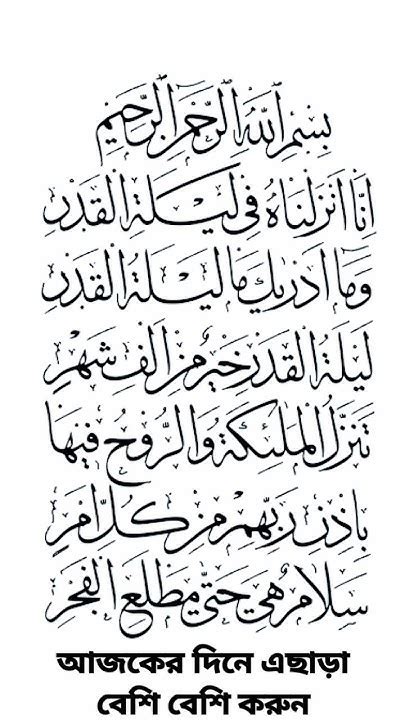 بِسْمِ اللهِ الرَّحْمٰنِ الرَّحِيْمِ
اِنَّا اَنْزَلْنَاهُ فِی لَيْلَةِ الْقَدْرِ
وَمَا اَدْرٰیكَ مَا لَيْلَةُ الْقَدْرِ
لَيْلَةُ الْقَدْرِ خَيْرٌ مِنْ اَلْفِ شَهْرٍ
تَنَزَّلُ الْمَلٰئِكَةُ وَالرُّوحُ فِيْهَا
بِاِذْنِ رَبِّهِمْ مِنْ كُلِّ اَمْرٍ
سَلَامٌ هِیَ حَتّٰی مَطْلَعِ الْفَجْرِ
আজকের দিনে এছাড়া
বেশি বেশি করুন